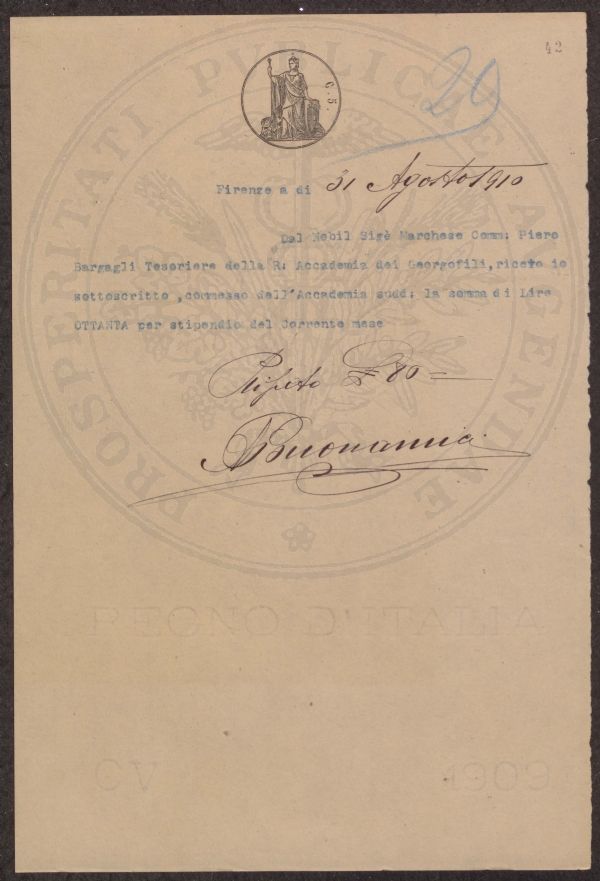 42
C. 5.
29
Firenze a di 31 Agosto 1910
Dal Nobil Sigè Marchese Comm: Piero
Bargagli Tesoriere della R: Accademia dei Georgofili, ricevo io
sottoscritto ,commesso dell'Accademia sudd: la somma di Lire
OTTANTA per stipendio del Corrente mese
Ripeto £ 80=
ABuonamici
PROSPERITATI PVBLICAE AVGENDAE
REGNO D'ITALIA
CV 1909